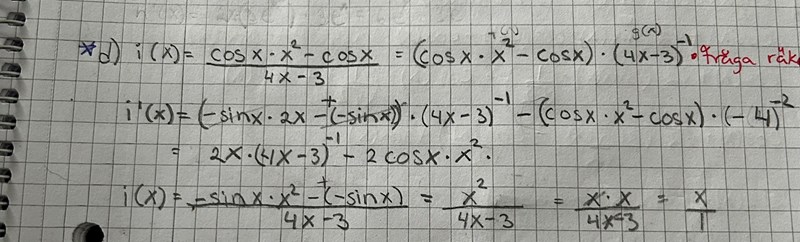 f(x) g(x)
*d) i(x) = cosx·x² − cosx / 4x−3 = (cosx·x² − cosx)·(4x−3)⁻¹ • fråga räk
i'(x) = (−sinx·2x −⁺(−sinx))·(4x−3)⁻¹ − (cosx·x² − cosx)·(−4)⁻²
= 2x·(4x−3)⁻¹ − 2cosx·x²·
i(x) = −sinx·x² −⁺(−sinx) / 4x−3 = x² / 4x−3 = x·x / 4x−3 = x / 1